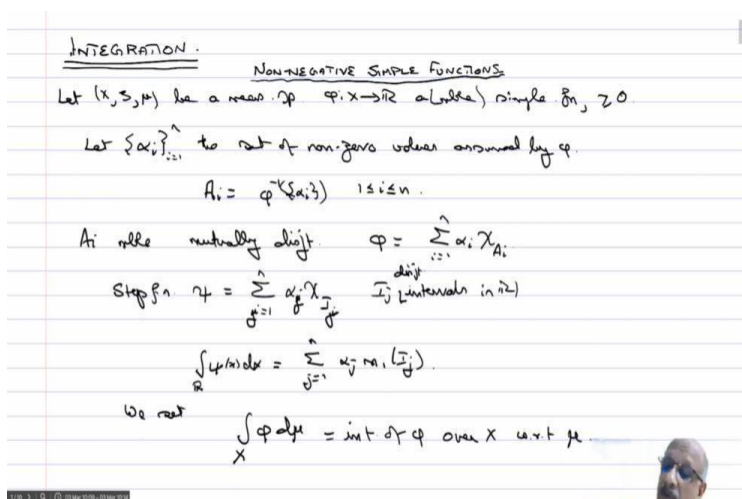 INTEGRATION.
NON-NEGATIVE SIMPLE FUNCTIONS.
Let (X, S, μ) be a meas. sp φ: X→ℝ a (mble) simple fn, ≥0.
Let {αᵢ}ⁿᵢ₌₁ be set of non-zero values assumed by φ.
Aᵢ = φ⁻¹({αᵢ}) 1≤i≤n.
Aᵢ mble mutually disjt. φ = Σⁿᵢ₌₁ αᵢ χ_Aᵢ
Step fn ψ = Σⁿⱼ₌₁ αⱼ χ_Iⱼ Iⱼ disjt intervals in ℝ)
∫_ℝ ψ(x)dx = Σⁿⱼ₌₁ αⱼ m₁(Iⱼ).
We set
∫_X φ dμ = int of φ over X w.r.t μ.